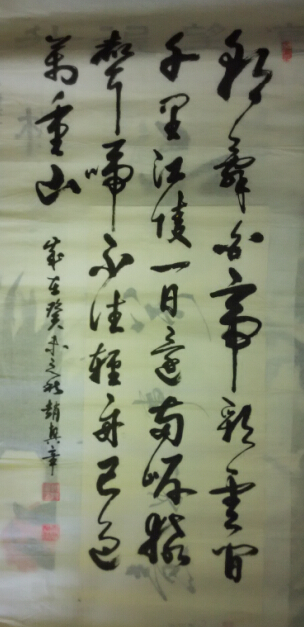 朝辭白帝彩雲間
千里江陵一日還兩岸猿
聲啼不住輕舟已過
萬重山
歲在癸未之秋趙章